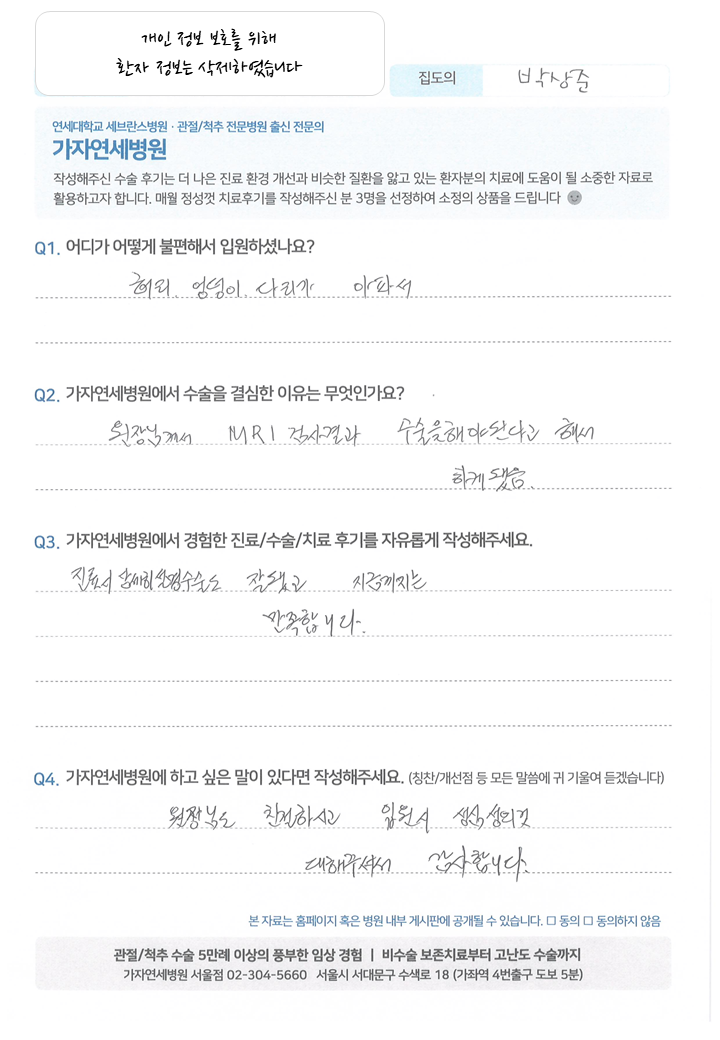 개인 정보 보호를 위해
환자 정보는 삭제하였습니다
집도의 박상준
연세대학교 세브란스병원 · 관절/척추 전문병원 출신 전문의
가자연세병원
작성해주신 수술 후기는 더 나은 진료 환경 개선과 비슷한 질환을 앓고 있는 환자분의 치료에 도움이 될 소중한 자료로
활용하고자 합니다. 매월 정성껏 치료후기를 작성해주신 분 3명을 선정하여 소정의 상품을 드립니다
Q1. 어디가 어떻게 불편해서 입원하셨나요?
허리. 엉덩이. 다리가 아파서
Q2. 가자연세병원에서 수술을 결심한 이유는 무엇인가요?
원장님께서 MRI 검사결과 수술을해야된다고 해서
하게됐음.
Q3. 가자연세병원에서 경험한 진료/수술/치료 후기를 자유롭게 작성해주세요.
잘됐고 지금까지는
만족합니다.
Q4. 가자연세병원에 하고 싶은 말이 있다면 작성해주세요. (칭찬/개선점 등 모든 말씀에 귀 기울여 듣겠습니다)
원장님도 친절하시고 입원시 성심성의껏
대해주셔서 감사합니다.
본 자료는 홈페이지 혹은 병원 내부 게시판에 공개될 수 있습니다. □ 동의 □ 동의하지 않음
관절/척추 수술 5만례 이상의 풍부한 임상 경험 | 비수술 보존치료부터 고난도 수술까지
가자연세병원 서울점 02-304-5660 서울시 서대문구 수색로 18 (가좌역 4번출구 도보 5분)